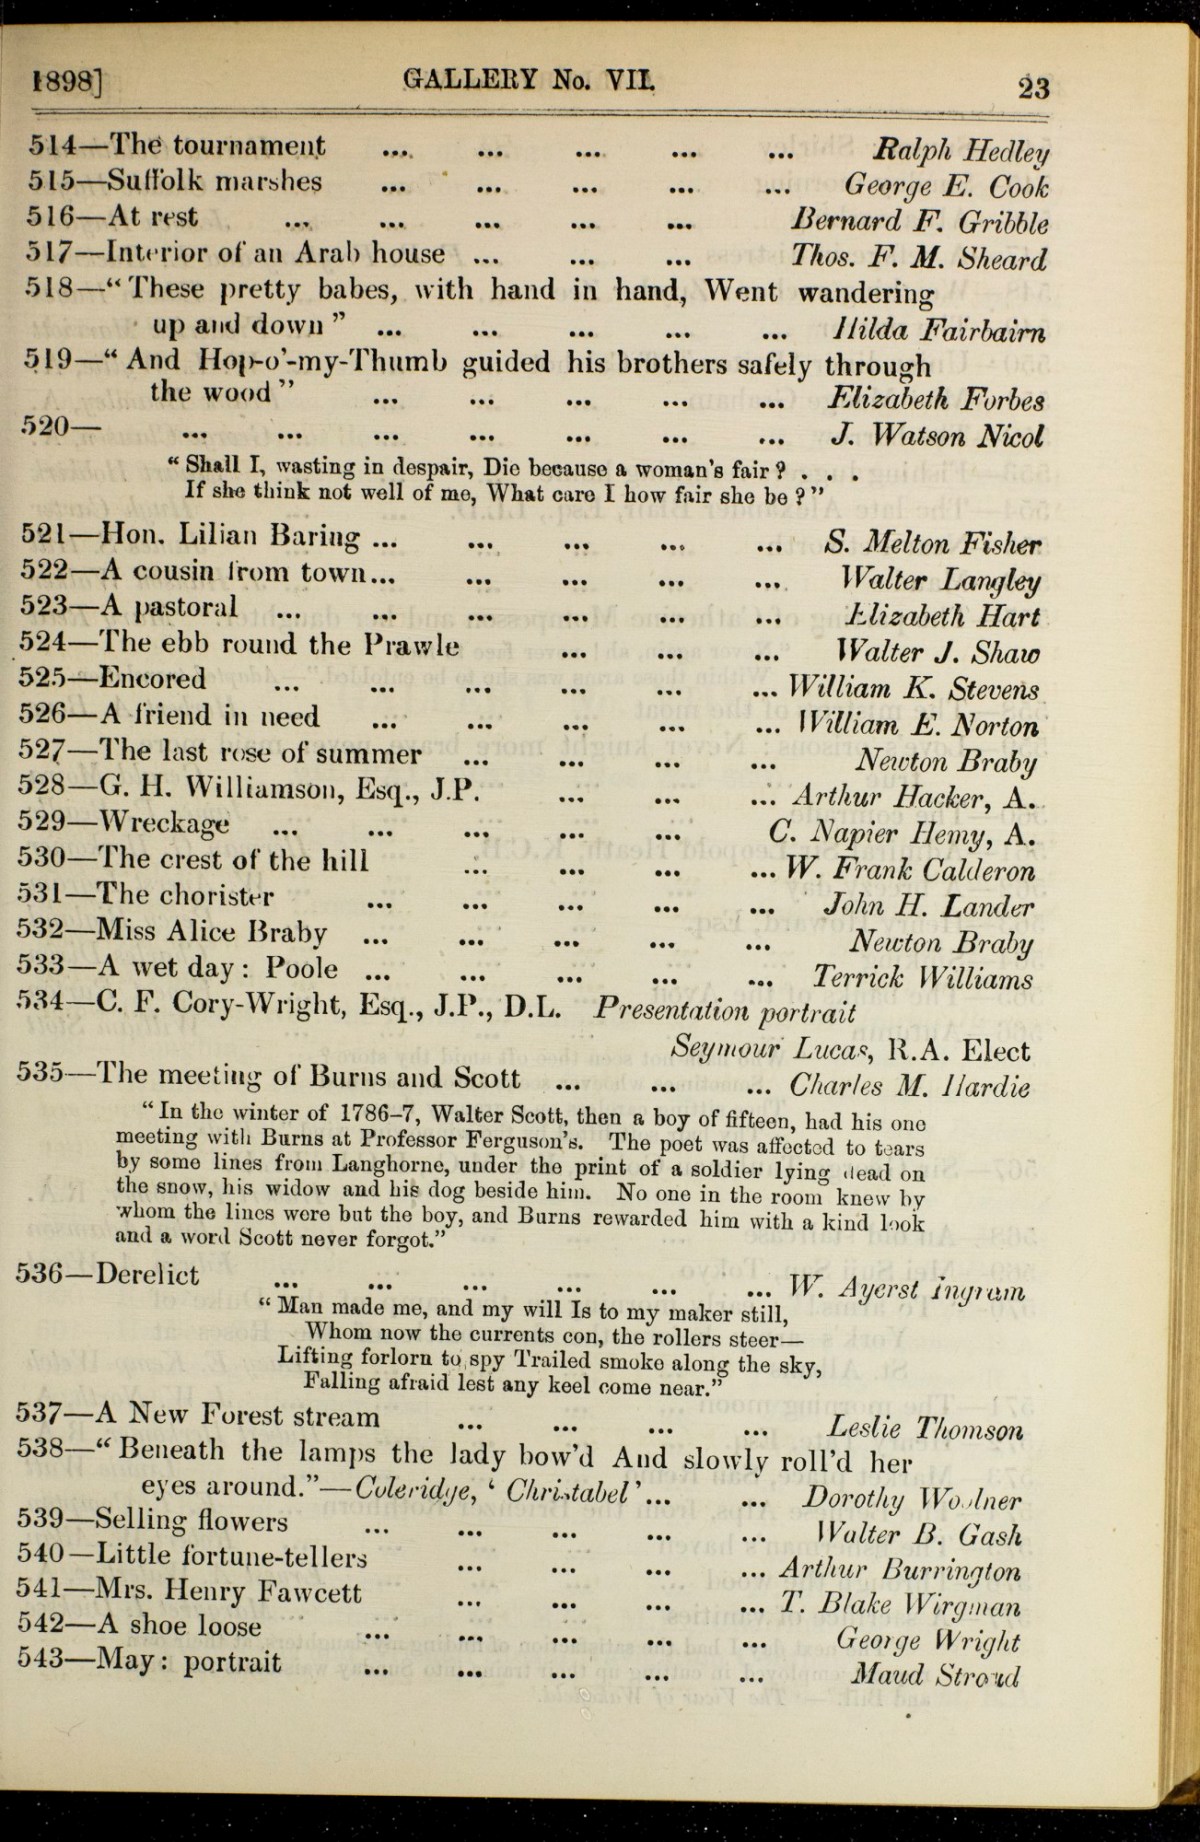 1898] GALLERY No. VII. 23
514—The tournament ... ... ... ... ... Ralph Hedley
515—Suffolk marshes ... ... ... ... ... George E. Cook
516—At rest ... ... ... ... ... Bernard F. Gribble
517—Interior of an Arab house ... ... ... Thos. F. M. Sheard
518—“These pretty babes, with hand in hand, Went wandering
up and down” ... ... ... ... ... Hilda Fairbairn
519—“And Hop-o’-my-Thumb guided his brothers safely through
the wood” ... ... ... ... ... Elizabeth Forbes
520— ... ... ... ... ... ... ... J. Watson Nicol
“Shall I, wasting in despair, Die because a woman’s fair? . . .
If she think not well of me, What care I how fair she be?”
521—Hon. Lilian Baring ... ... ... ... ... S. Melton Fisher
522—A cousin from town... ... ... ... ... Walter Langley
523—A pastoral ... ... ... ... ... ... Elizabeth Hart
524—The ebb round the Prawle ... ... ... Walter J. Shaw
525—Encored ... ... ... ... ... ... William K. Stevens
526—A friend in need ... ... ... ... ... William E. Norton
527—The last rose of summer ... ... ... ... Newton Braby
528—G. H. Williamson, Esq., J.P. ... ... ... Arthur Hacker, A.
529—Wreckage ... ... ... ... ... C. Napier Hemy, A.
530—The crest of the hill ... ... ... ... W. Frank Calderon
531—The chorister ... ... ... ... ... John H. Lander
532—Miss Alice Braby ... ... ... ... ... Newton Braby
533—A wet day: Poole ... ... ... ... ... Terrick Williams
534—C. F. Cory-Wright, Esq., J.P., D.L. Presentation portrait
Seymour Lucas, R.A. Elect
535—The meeting of Burns and Scott ... ... ... Charles M. Hardie
“In the winter of 1786–7, Walter Scott, then a boy of fifteen, had his one
meeting with Burns at Professor Ferguson’s. The poet was affected to tears
by some lines from Langhorne, under the print of a soldier lying dead on
the snow, his widow and his dog beside him. No one in the room knew by
whom the lines were but the boy, and Burns rewarded him with a kind look
and a word Scott never forgot.”
536—Derelict ... ... ... ... ... ... W. Ayerst Ingram
“Man made me, and my will Is to my maker still,
Whom now the currents con, the rollers steer—
Lifting forlorn to spy Trailed smoke along the sky,
Falling afraid lest any keel come near.”
537—A New Forest stream ... ... ... ... Leslie Thomson
538—“Beneath the lamps the lady bow’d And slowly roll’d her
eyes around.”—Coleridge, ‘Christabel’... ... Dorothy Woolner
539—Selling flowers ... ... ... ... ... Walter B. Gash
540—Little fortune-tellers ... ... ... ... Arthur Burrington
541—Mrs. Henry Fawcett ... ... ... ... T. Blake Wirgman
542—A shoe loose ... ... ... ... ... George Wright
543—May: portrait ... ... ... ... ... Maud Stroud